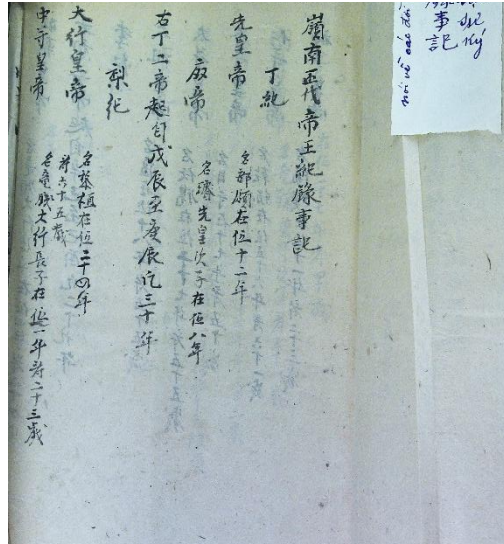 嶺南五代帝王紀錄事記
丁紀
先皇帝
名部領在位十二年
廢帝
名璿先皇次子在位八年
右丁二帝起自戊辰至庚辰凡三十年
黎紀
大行皇帝
名桓在位二十四年
壽六十五歲
中宗皇帝
名龍鉞大行長子在位一年壽二十三歲
錄事記
ký